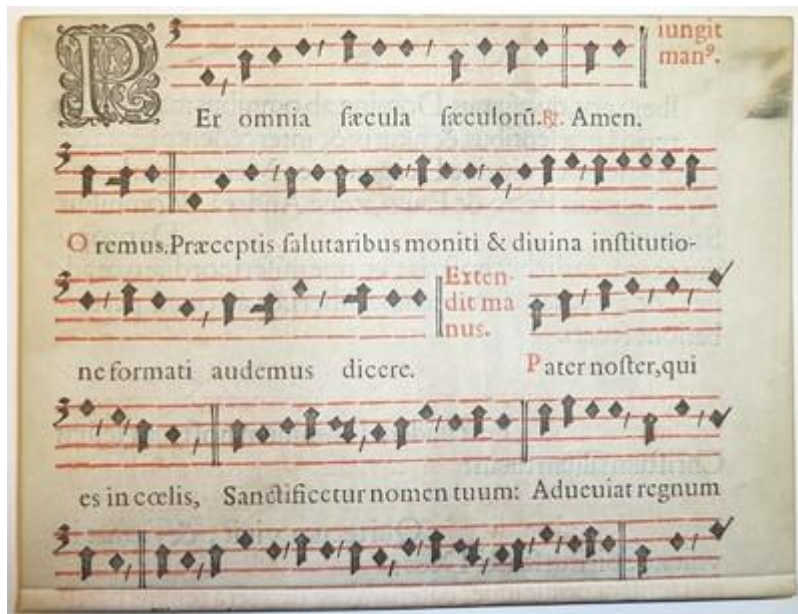 iungit
man⁹.
PEr omnia sæcula sæculorū.℟. Amen.
Oremus.Præceptis salutaribus moniti & diuina institutio-
Exten-
dit ma
nus.
ne formati audemus dicere. Pater noster,qui
es in cœlis, Sanctificetur nomen tuum: Adueniat regnum